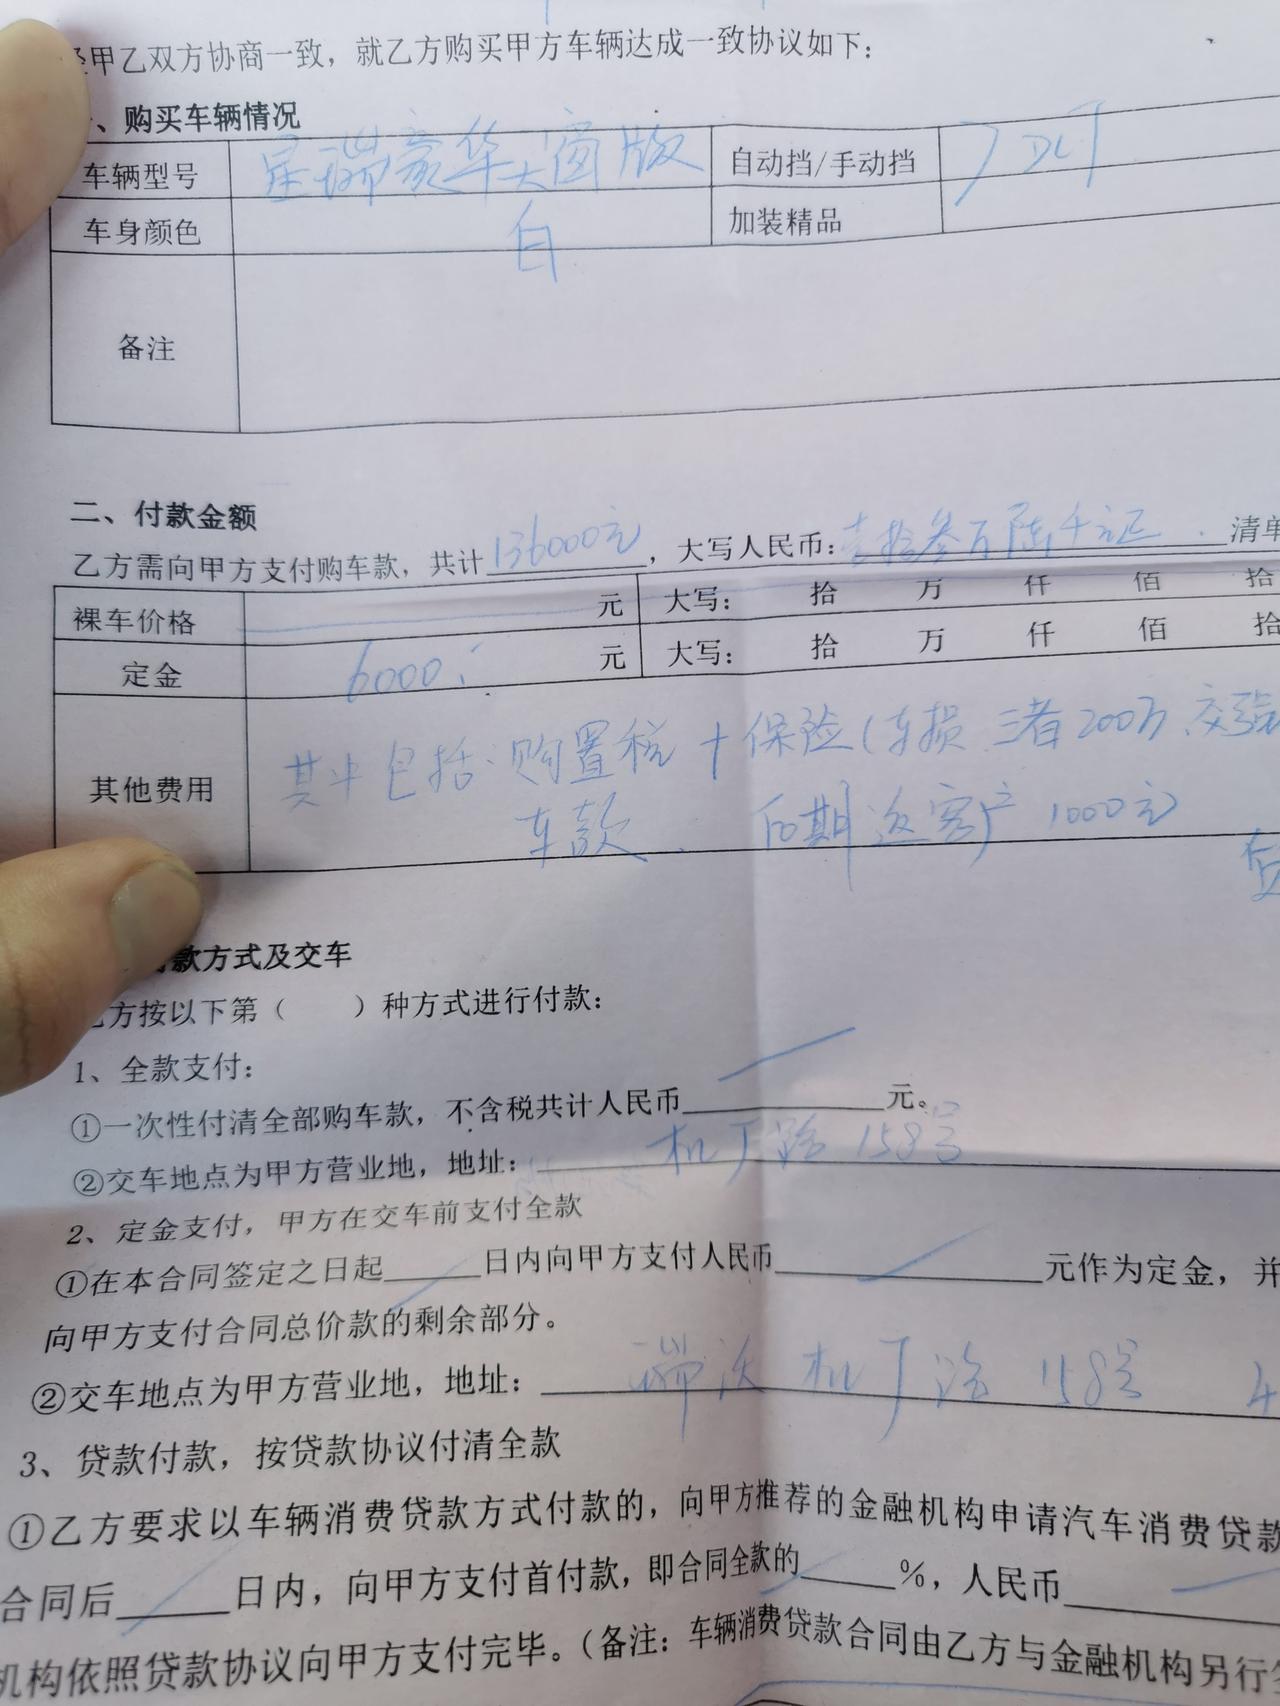 经甲乙双方协商一致，就乙方购买甲方车辆达成一致协议如下：
、购买车辆情况
车辆型号 星瑞豪华天窗版 自动挡/手动挡 7DCT
车身颜色 白 加装精品
备注
二、付款金额
乙方需向甲方支付购车款，共计136000元，大写人民币：壹拾叁万陆千元正. 清单
裸车价格 元 大写： 拾 万 仟 佰 拾
定金 6000. 元 大写： 拾 万 仟 佰 拾
其他费用 其中包括：购置税+保险（车损、三者200万、交强
车款、后期返客户1000元
款方式及交车
乙方按以下第（ ）种方式进行付款：
1、全款支付：
①一次性付清全部购车款，不含税共计人民币 元。
②交车地点为甲方营业地，地址： 机厂路158号
2、定金支付，甲方在交车前支付全款
①在本合同签定之日起 日内向甲方支付人民币 元作为定金，并
向甲方支付合同总价款的剩余部分。
②交车地点为甲方营业地，地址： 瑞沃 机厂路158号 4
3、贷款付款，按贷款协议付清全款
①乙方要求以车辆消费贷款方式付款的，向甲方推荐的金融机构申请汽车消费贷款
合同后 日内，向甲方支付首付款，即合同全款的 %，人民币
机构依照贷款协议向甲方支付完毕。（备注：车辆消费贷款合同由乙方与金融机构另行签